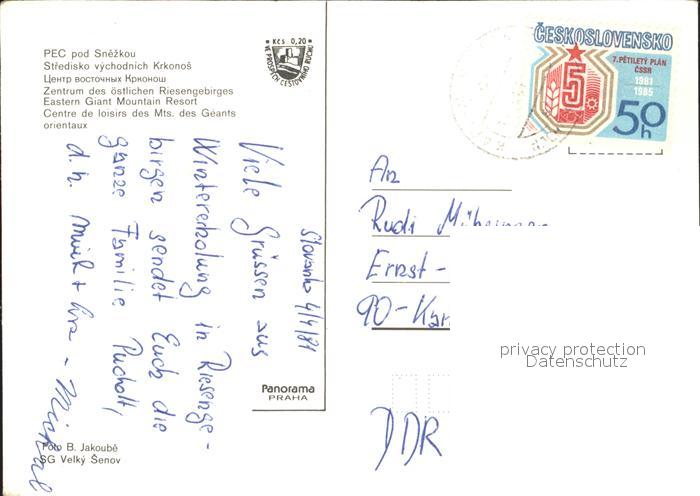 PEC pod Sněžkou
Středisko východních Krkonoš
Центр восточных Крконош
Zentrum des östlichen Riesengebirges
Eastern Giant Mountain Resort
Centre de loisirs des Mts. des Géants
orientaux
Kčs 0,20
VE PROSPĚCH CESTOVNÍHO RUCHU
ČESKOSLOVENSKO
7. PĚTILETÝ PLÁN
ČSSR
1981
1985
5
50h
4/4/81
Viele Grüssen aus
Wintererholung in Riesenge-
birgen sendet Euch die
ganze Familie
d.h. + - Michal
An
Rudi
Ernst-
90-
DDR
Panorama
PRAHA
Foto B. Jakoubě
SG Velký Šenov
privacy protection
Datenschutz